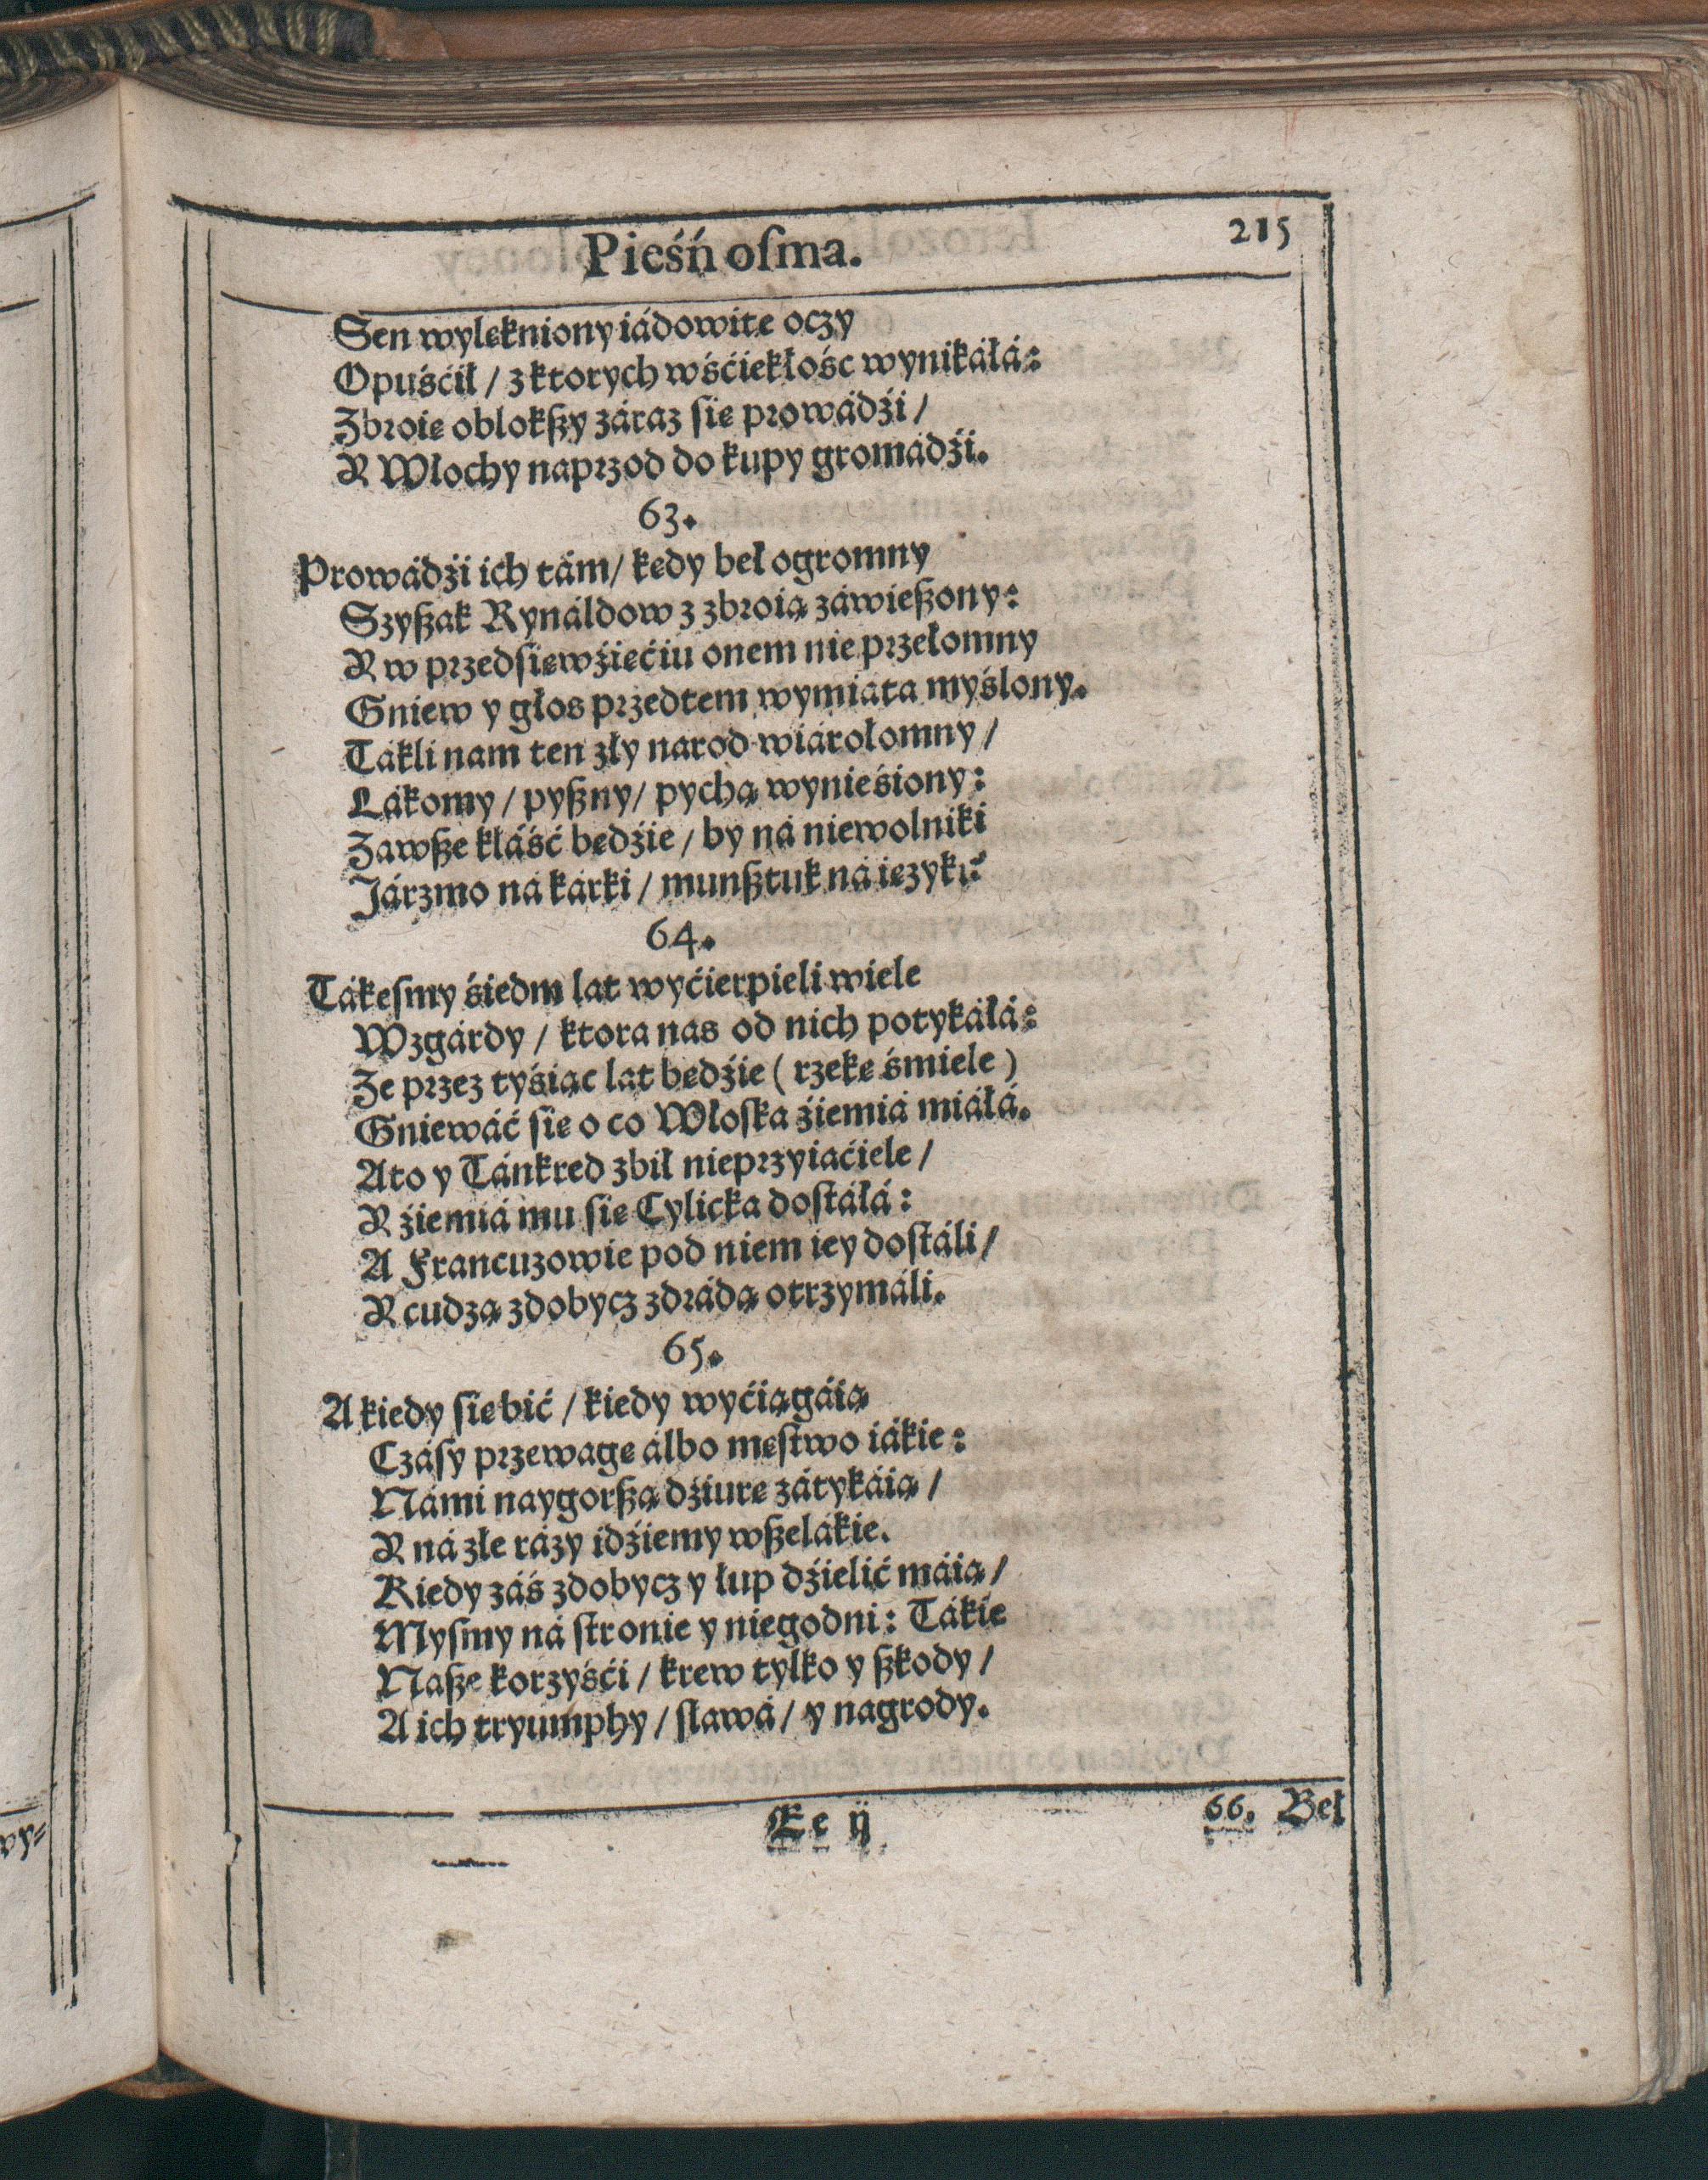 Pieśń oſma.
215
Sen wylękniony iádowite oczy
Opuśćił / z ktorych wśćiekłośc wynikáłá:
Zbroię oblokſzy záraz ſię prowádźi /
Y Włochy naprzod do kupy gromádźi.
63.
Prowádźi ich tám / kędy beł ogromny
Szyſzak Rynáldow z zbroią záwieſzony:
Y w przedſięwźięćiu onem nie przełomny
Gniew y głos przedtem wymiata myślony.
Tákli nam ten zły narod wiárołomny /
Lákomy / pyſzny / pychą wynieśiony:
Zawſze kłáść będźie / by ná niewolniki
Járzmo ná kárki / munſztuk ná ięzyki?
64.
Tákeſmy śiedm lat wyćierpieli wiele
Wzgárdy / ktora nas od nich potykáłá:
Ze przez tyśiąc lat będźie ( rzekę śmiele )
Gniewáć ſię o co Włoſka źiemiá miáłá.
Ato y Tánkred zbił nieprzyiaćiele /
Y źiemiá mu ſię Cylicka doſtáłá:
A Francuzowie pod niem iey doſtáli /
Y cudzą zdobycz zdrádą otrzymáli.
65.
A kiedy ſię bić / kiedy wyćiągáią
Czáſy przewagę álbo męſtwo iákie:
Námi naygorſzą dźiurę zátykáią /
Y ná złe rázy idźiemy wſzelákie.
Kiedy záś zdobycz y łup dźielić máią /
Myſmy ná ſtronie y niegodni: Tákie
Naſze korzyśći / krew tylko y ſzkody /
A ich tryumphy / ſławá / y nagrody.
Ee ij
66. Beł
wy=